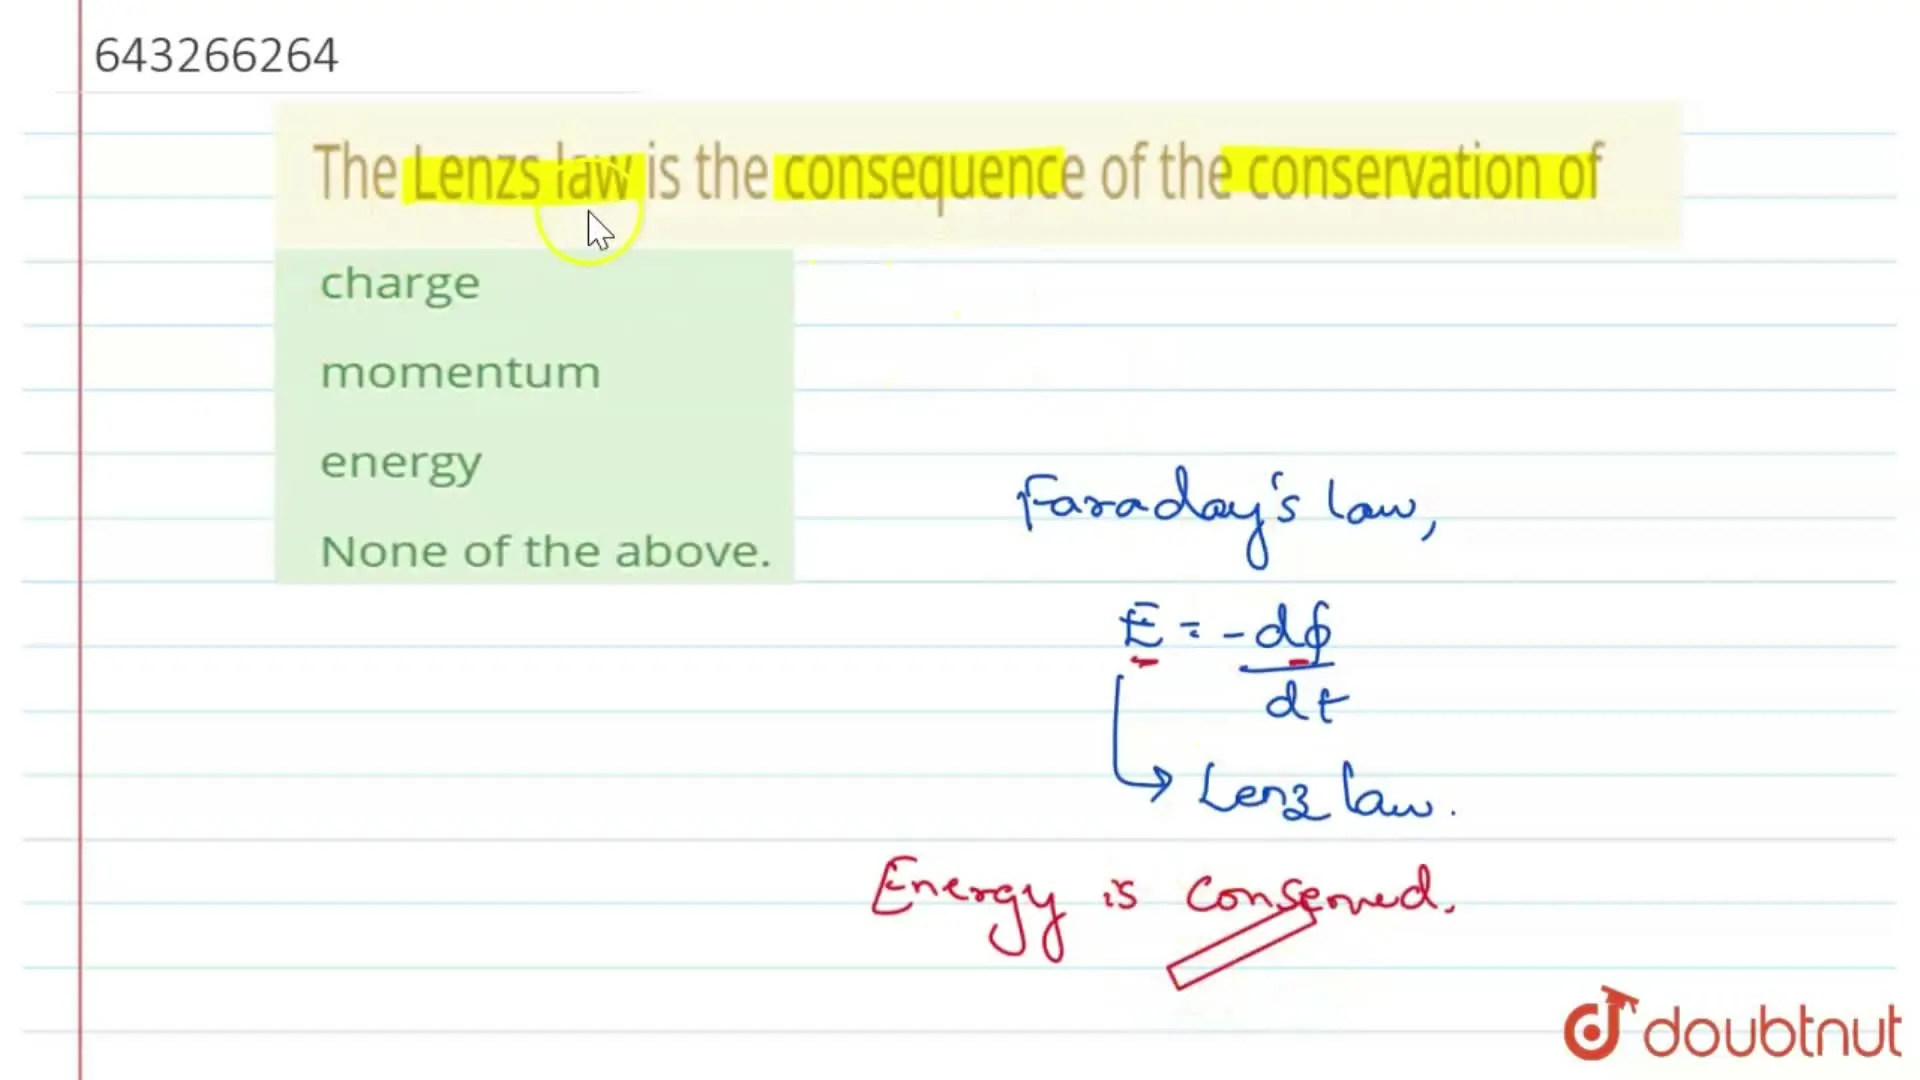 643266264
The Lenzs law is the consequence of the conservation of
charge
momentum
energy
None of the above.
Faraday's law,
E = -dϕ
dt
Lenz law.
Energy is conserved.
doubtnut